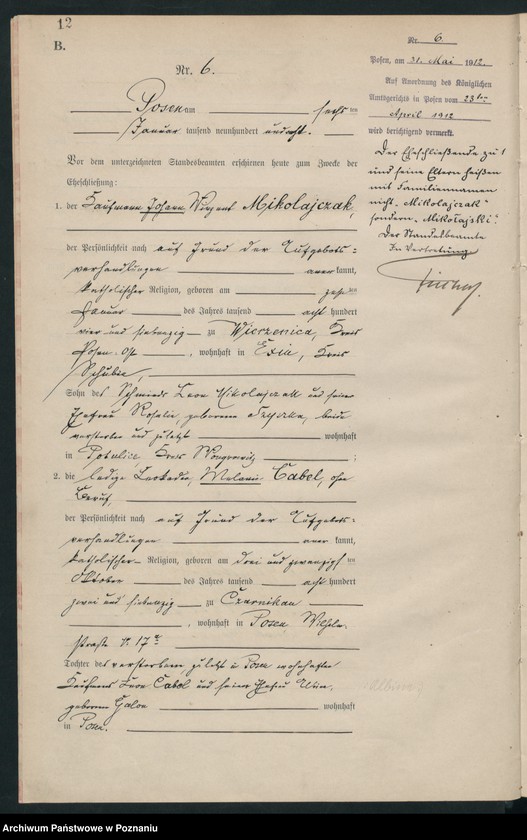 12
B.
Nr. 6.
Posen am sechsten
Januar tausend neunhundert und acht.
Vor dem unterzeichneten Standesbeamten erschienen heute zum Zwecke der
Eheschließung:
1. der Kaufmann Johann Vinzent Mikolajczak,
der Persönlichkeit nach auf Grund der Aufgebots-
verhandlungen anerkannt,
katholischer Religion, geboren am
Januar des Jahres tausend acht hundert
vier und siebenzig zu Wierzenica, Kreis
Posen-Ost, wohnhaft in Exin, Kreis
Schubin,
Sohn des Schmieds Leon Mikolajczak und seiner
Ehefrau Rosalie, geborenen beide
verstorben und zuletzt wohnhaft
in Potulice, Kreis Wongrowitz;
2. die ledige Leokadia, Melanie Cabel, ohne
Beruf,
der Persönlichkeit nach auf Grund der Aufgebots-
verhandlungen anerkannt,
katholischer Religion, geboren am drei und zwanzigsten
Oktober des Jahres tausend acht hundert
zwei und siebenzig zu Czarnikau
, wohnhaft in Posen
straße N. 17
Tochter des verstorbenen, zuletzt in Posen wohnhaften
Kaufmanns Cabel und seiner Ehefrau
geborenen wohnhaft
in Posen.
Nr. 6
Posen, am 31. Mai 1912.
Auf Anordnung des Königlichen
Amtsgerichts in Posen vom 23ten
April 1912
wird berichtigend vermerkt.
Der Eheschließende zu 1
und seine Eltern heißen
mit Familiennamen
nicht „Mikolajczak"
sondern „Mikołajski".
Der Standesbeamte
In Vertretung
Archiwum Państwowe w Poznaniu